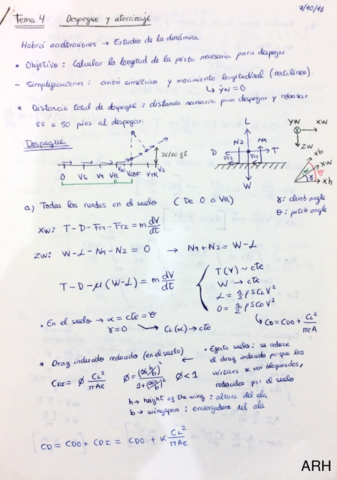 7/10/16
Tema 4 Despegue y aterrizaje
Habrá aceleraciones → Estudio de la dinámica.
* Objetivo: Calcular la longitud de la pista necesaria para despegar.
- Simplificaciones: avión simétrico y movimiento longitudinal (rectilíneo)
↳ ẏw = 0
* Distancia total de despegue: distancia necesaria para despegar y rebasar
35 ≈ 50 pies al despegar.
Despegue
0 VS VR VLOF V2
35/50 ft
L
D
N2 N1
T
FF2 FF1
W
YW XW
ZW
xb
xw
xh
γ: climb angle
θ: pitch angle
a) Todas las ruedas en el suelo (De 0 a VR)
XW: T - D - FF1 - FF2 = m dV/dt
ZW: W - L - N1 - N2 = 0 → N1 + N2 = W - L
T - D - μ(W - L) = m dV/dt
T(V) ~ cte
W → cte
L = 1/2 ρ S CL V²
D = 1/2 ρ S CD V²
↳ CD = CD0 + CL²/πeA
• En el suelo → α = cte = θ
γ = 0 → CL(α) → cte
* Drag inducido reducido (en el suelo)
CDI = Ø CL²/πAe
Ø = (16 h/b)²/1+(16 h/b)²
Ø < 1
• Efecto suelo: se reduce
el drag inducido porque los
vórtices se ven bloqueados,
reducidos por el suelo
h → height of the wing: altura del ala
b → wingspan: envergadura del ala
CD = CD0 + CDI = CD0 + K CL²/πAe
ARH